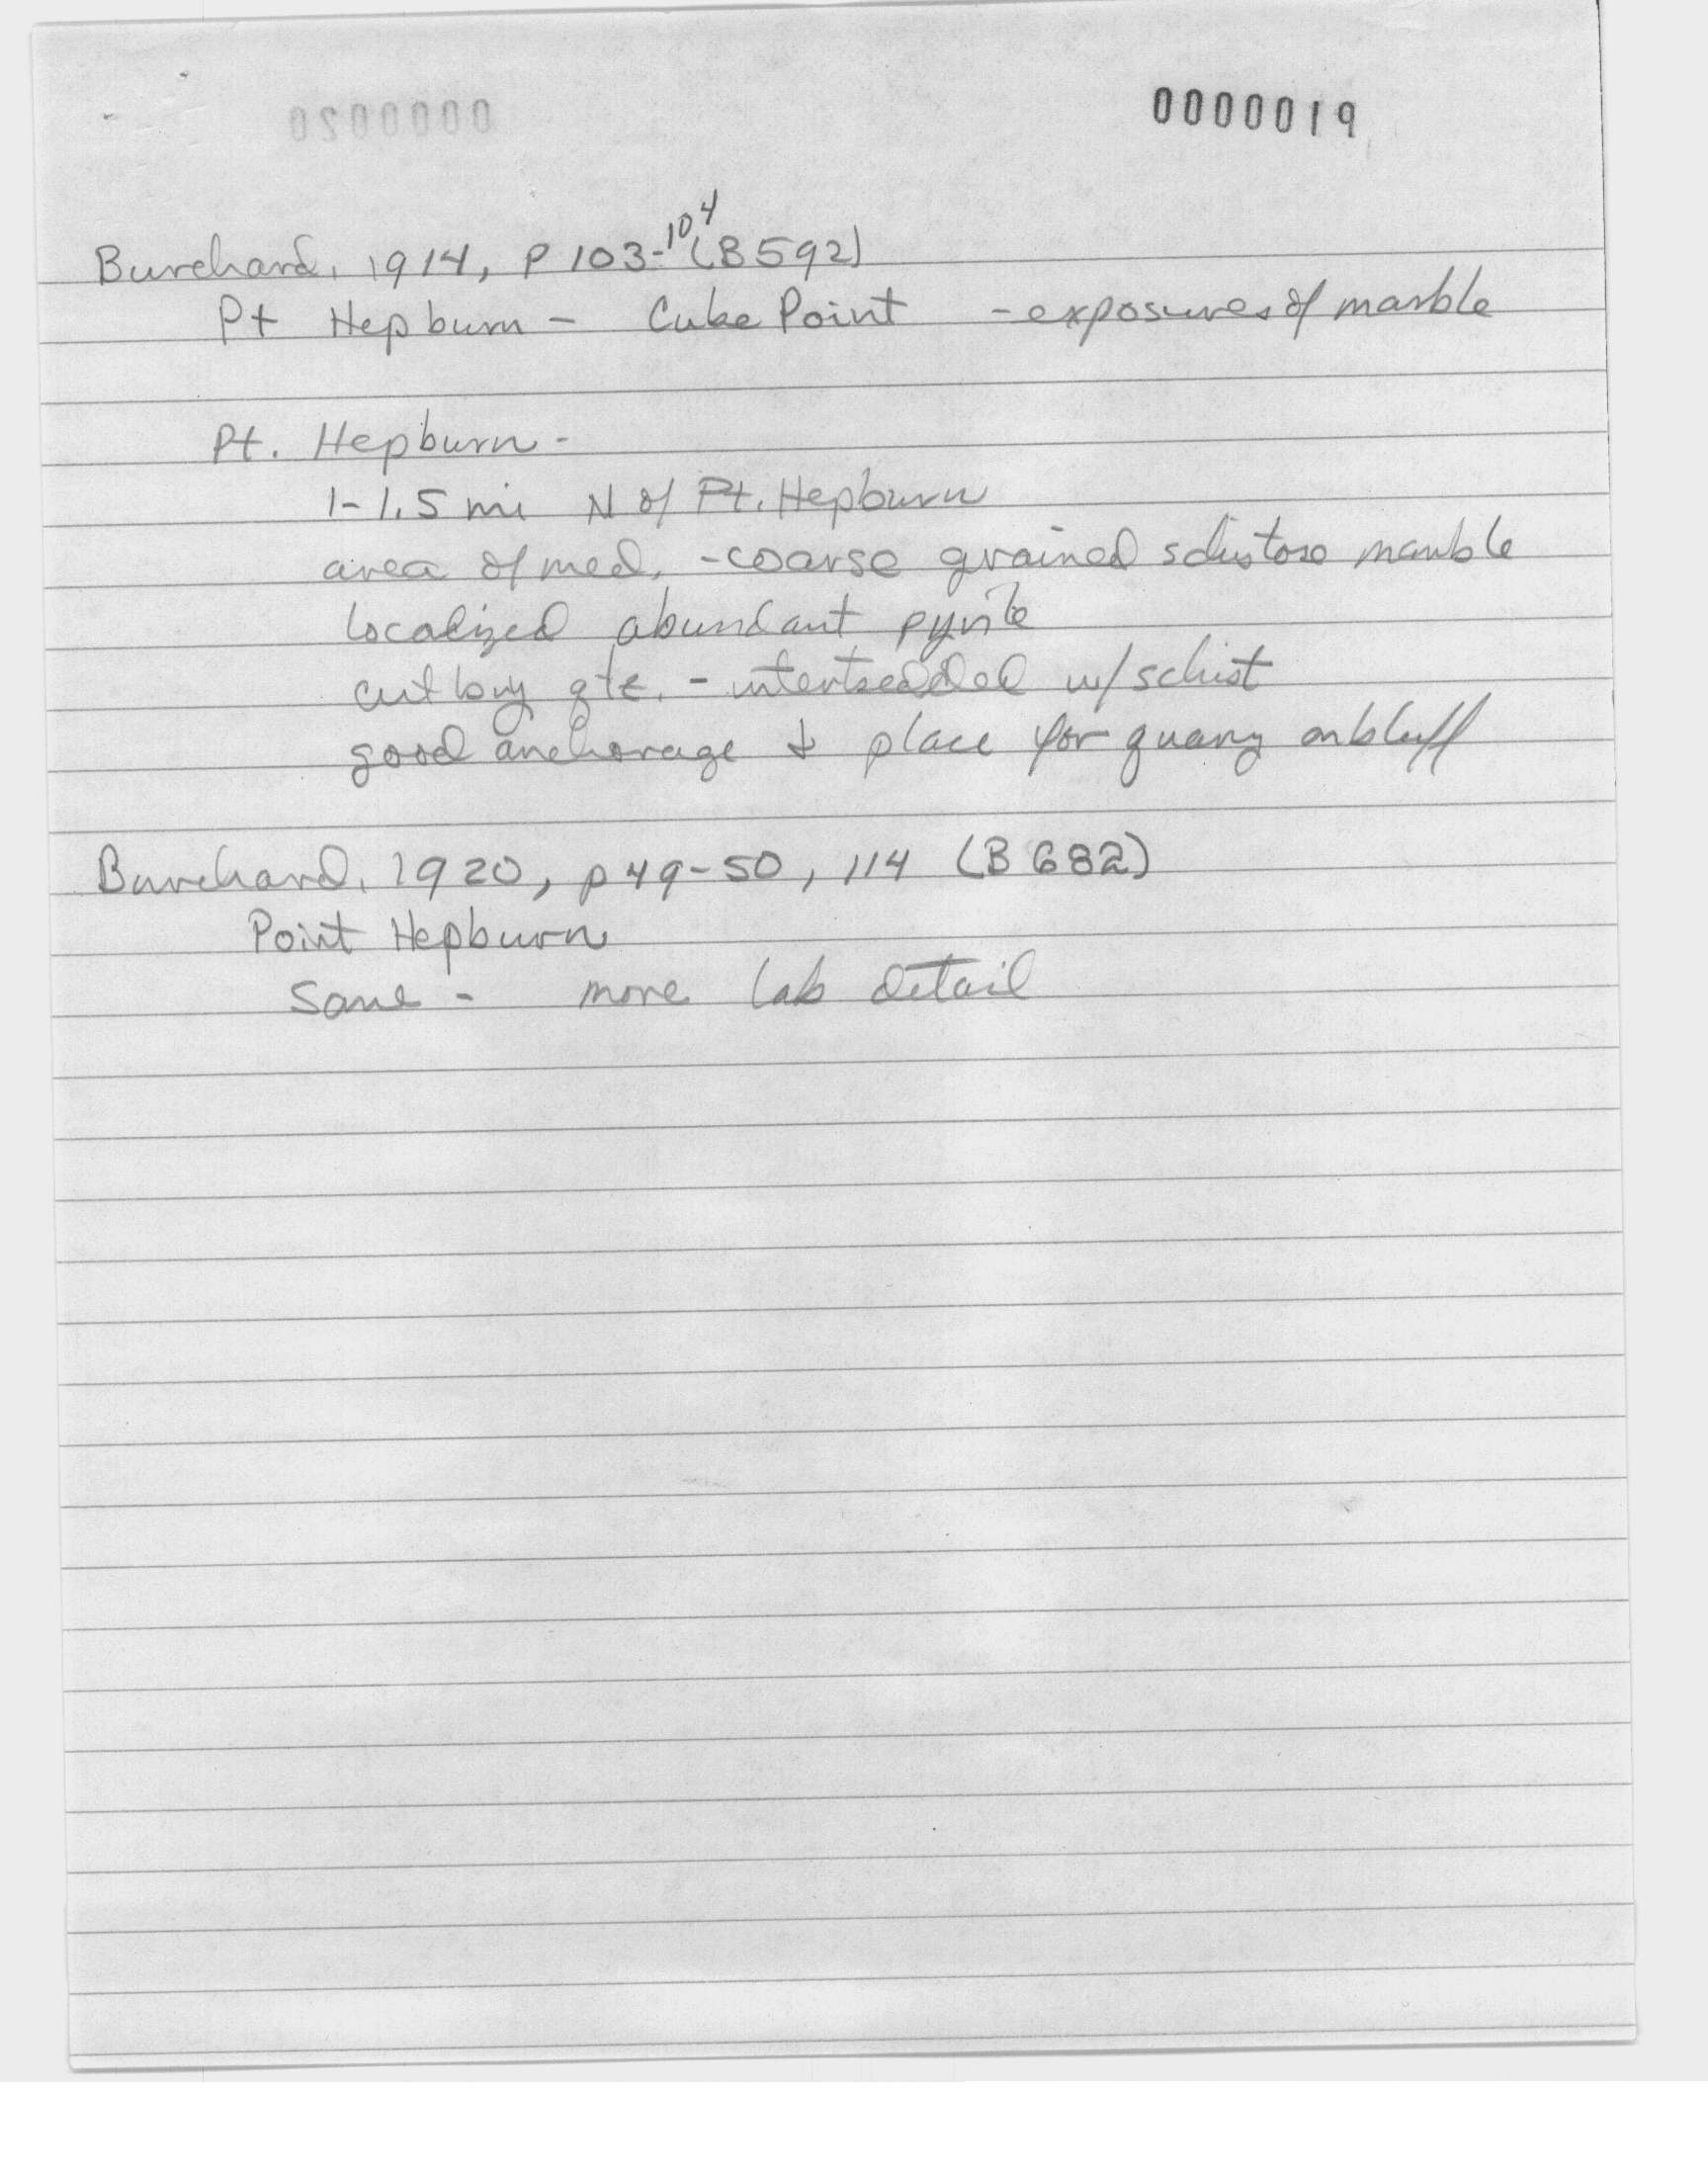 0000019
0000020
Burchard, 1914, P 103-104 (B592)
Pt Hepburn - Cube Point - exposures of marble
Pt. Hepburn -
1-1.5 mi N of Pt. Hepburn
area of med. - coarse grained schistose marble
localized abundant pyrite
cut by qtz. - interbedded w/ schist
good anchorage & place for quarry on bluff
Burchard, 1920, p 49-50, 114 (B 682)
Point Hepburn
Same - more lab detail